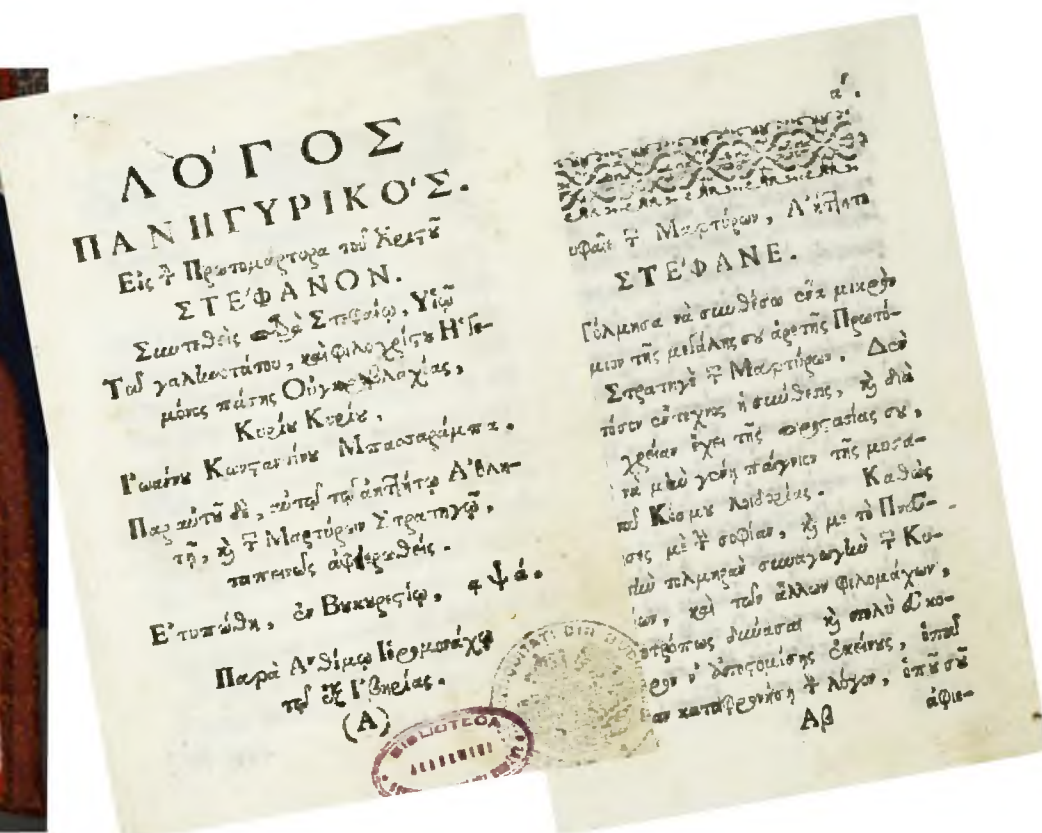 ΛΟ'ΓΟΣ
ΠΑΝΗΓΥΡΙΚΟ'Σ.
Εἰς τ̀ Πρωτομάρτυρα τοῦ Χριστοῦ
ΣΤΕ'ΦΑΝΟΝ.
Συντεθεὶς παρὰ Στεφάνου, Υἱοῦ
Τοῦ γαληνοτάτου, καὶ φιλοχρίστου Η'γε-
μόνος πάσης Οὐγκροβλαχίας,
Κυρίου Κυρίου,
Ι'ωάννου Κωνσταντίνου Μπασσαράμπα.
Παρ αὐτοῦ δὲ, αὐτῷ τῷ ἀηττήτῳ Α'θλη-
τῇ, καὶ τ̃ Μαρτύρων Στρατηγῷ,
ταπεινῶς ἀφιερωθείς.
Ε'τυπώθη, ἐν Βουκουρεστίῳ, αψά.
Παρὰ Ανθίμου Ἱερομονάχου
τοῦ ἐξ Ι'βηρίας.
(Α)
BIBLIOTECA
ACADEMIEI
α'.
τ̃ Μαρτύρων, Α'ήττητε
ΣΤΕ'ΦΑΝΕ.
Τόλμησα νὰ συνθέσω ἕνα μικρὸν
μιον τῆς μεγάλης σου ἀρετῆς Πρωτό-
Στρατηγὲ τ̃ Μαρτύρων. Δὲν
τόσον εὔτεχνος ἡ σύνθεσις, καὶ διὰ
χρείαν ἔχει τῆς προστασίας σου,
νὰ μὴν γένῃ παίγνιον τῆς
τοῦ Κόσμου λοιδορίας. Καθὼς
μὲ τ̀ σοφίαν, καὶ μὲ τὸ Πνεῦ-
τὴν τολμηρὰν συναγωγὴν τ̃ Κυ-
καὶ τῶν ἄλλων φιλομάχων,
δύνασαι καὶ πολὺ
ν' ἀποστομίσῃς ἐκείνους, ὁποῦ
καταφρονήσῃ τ̀ λόγον, ὁποῦ σοῦ
Αβ
ἀφιε-